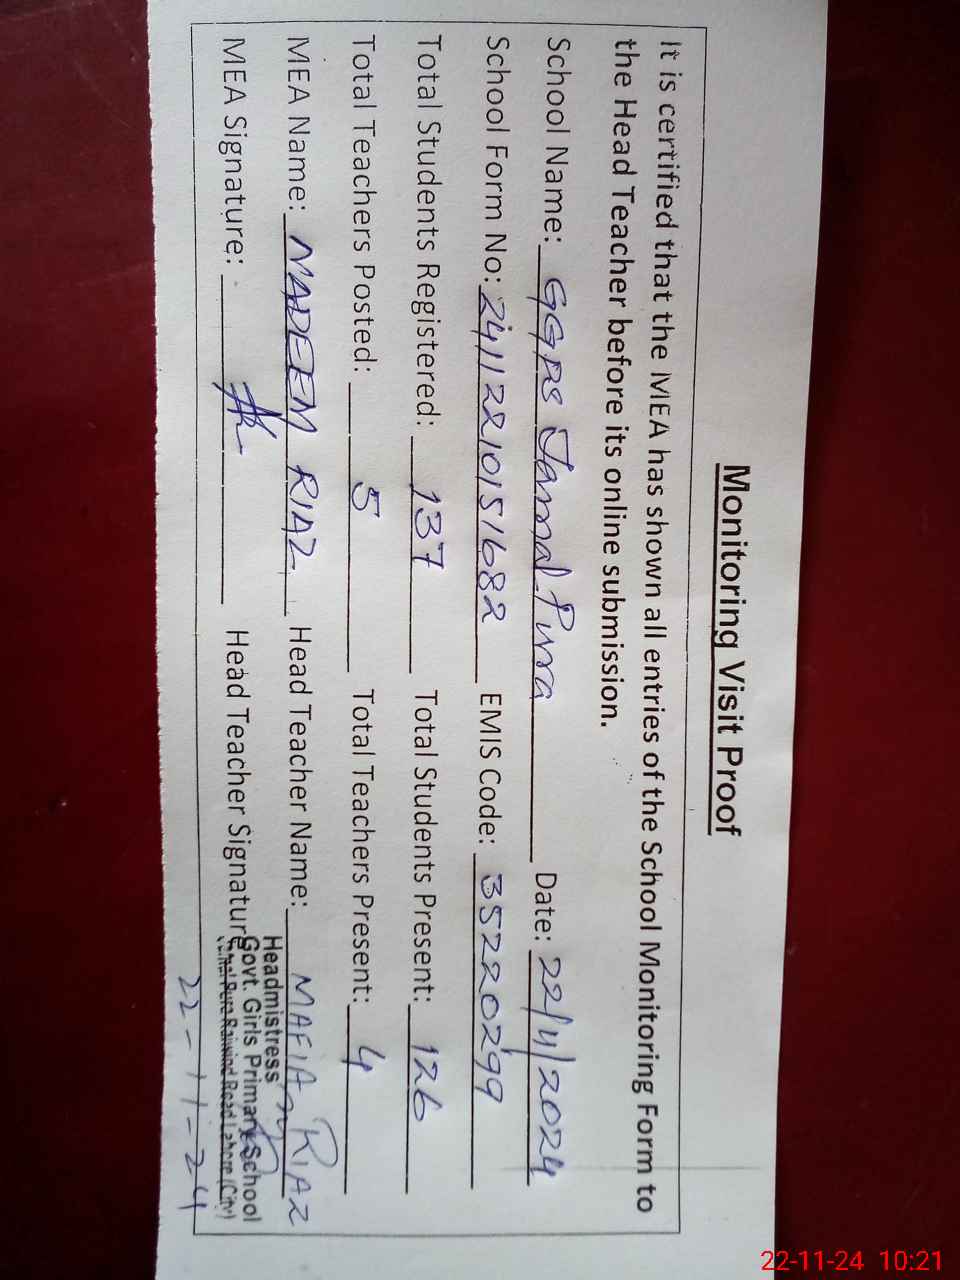 Monitoring Visit Proof
It is certified that the MEA has shown all entries of the School Monitoring Form to
the Head Teacher before its online submission.
School Name: GGPS Jamal Pura Date: 22/11/2024
School Form No: 24112210151682 EMIS Code: 35220299
Total Students Registered: 137 Total Students Present: 126
Total Teachers Posted: 5 Total Teachers Present: 4
MEA Name: NADEEM RIAZ Head Teacher Name: MAFIA RIAZ
MEA Signature: Head Teacher Signature
Headmistress
Govt. Girls Primary School
Pura Raiwind Road Lahore (City)
22-11-24
22-11-24 10:21